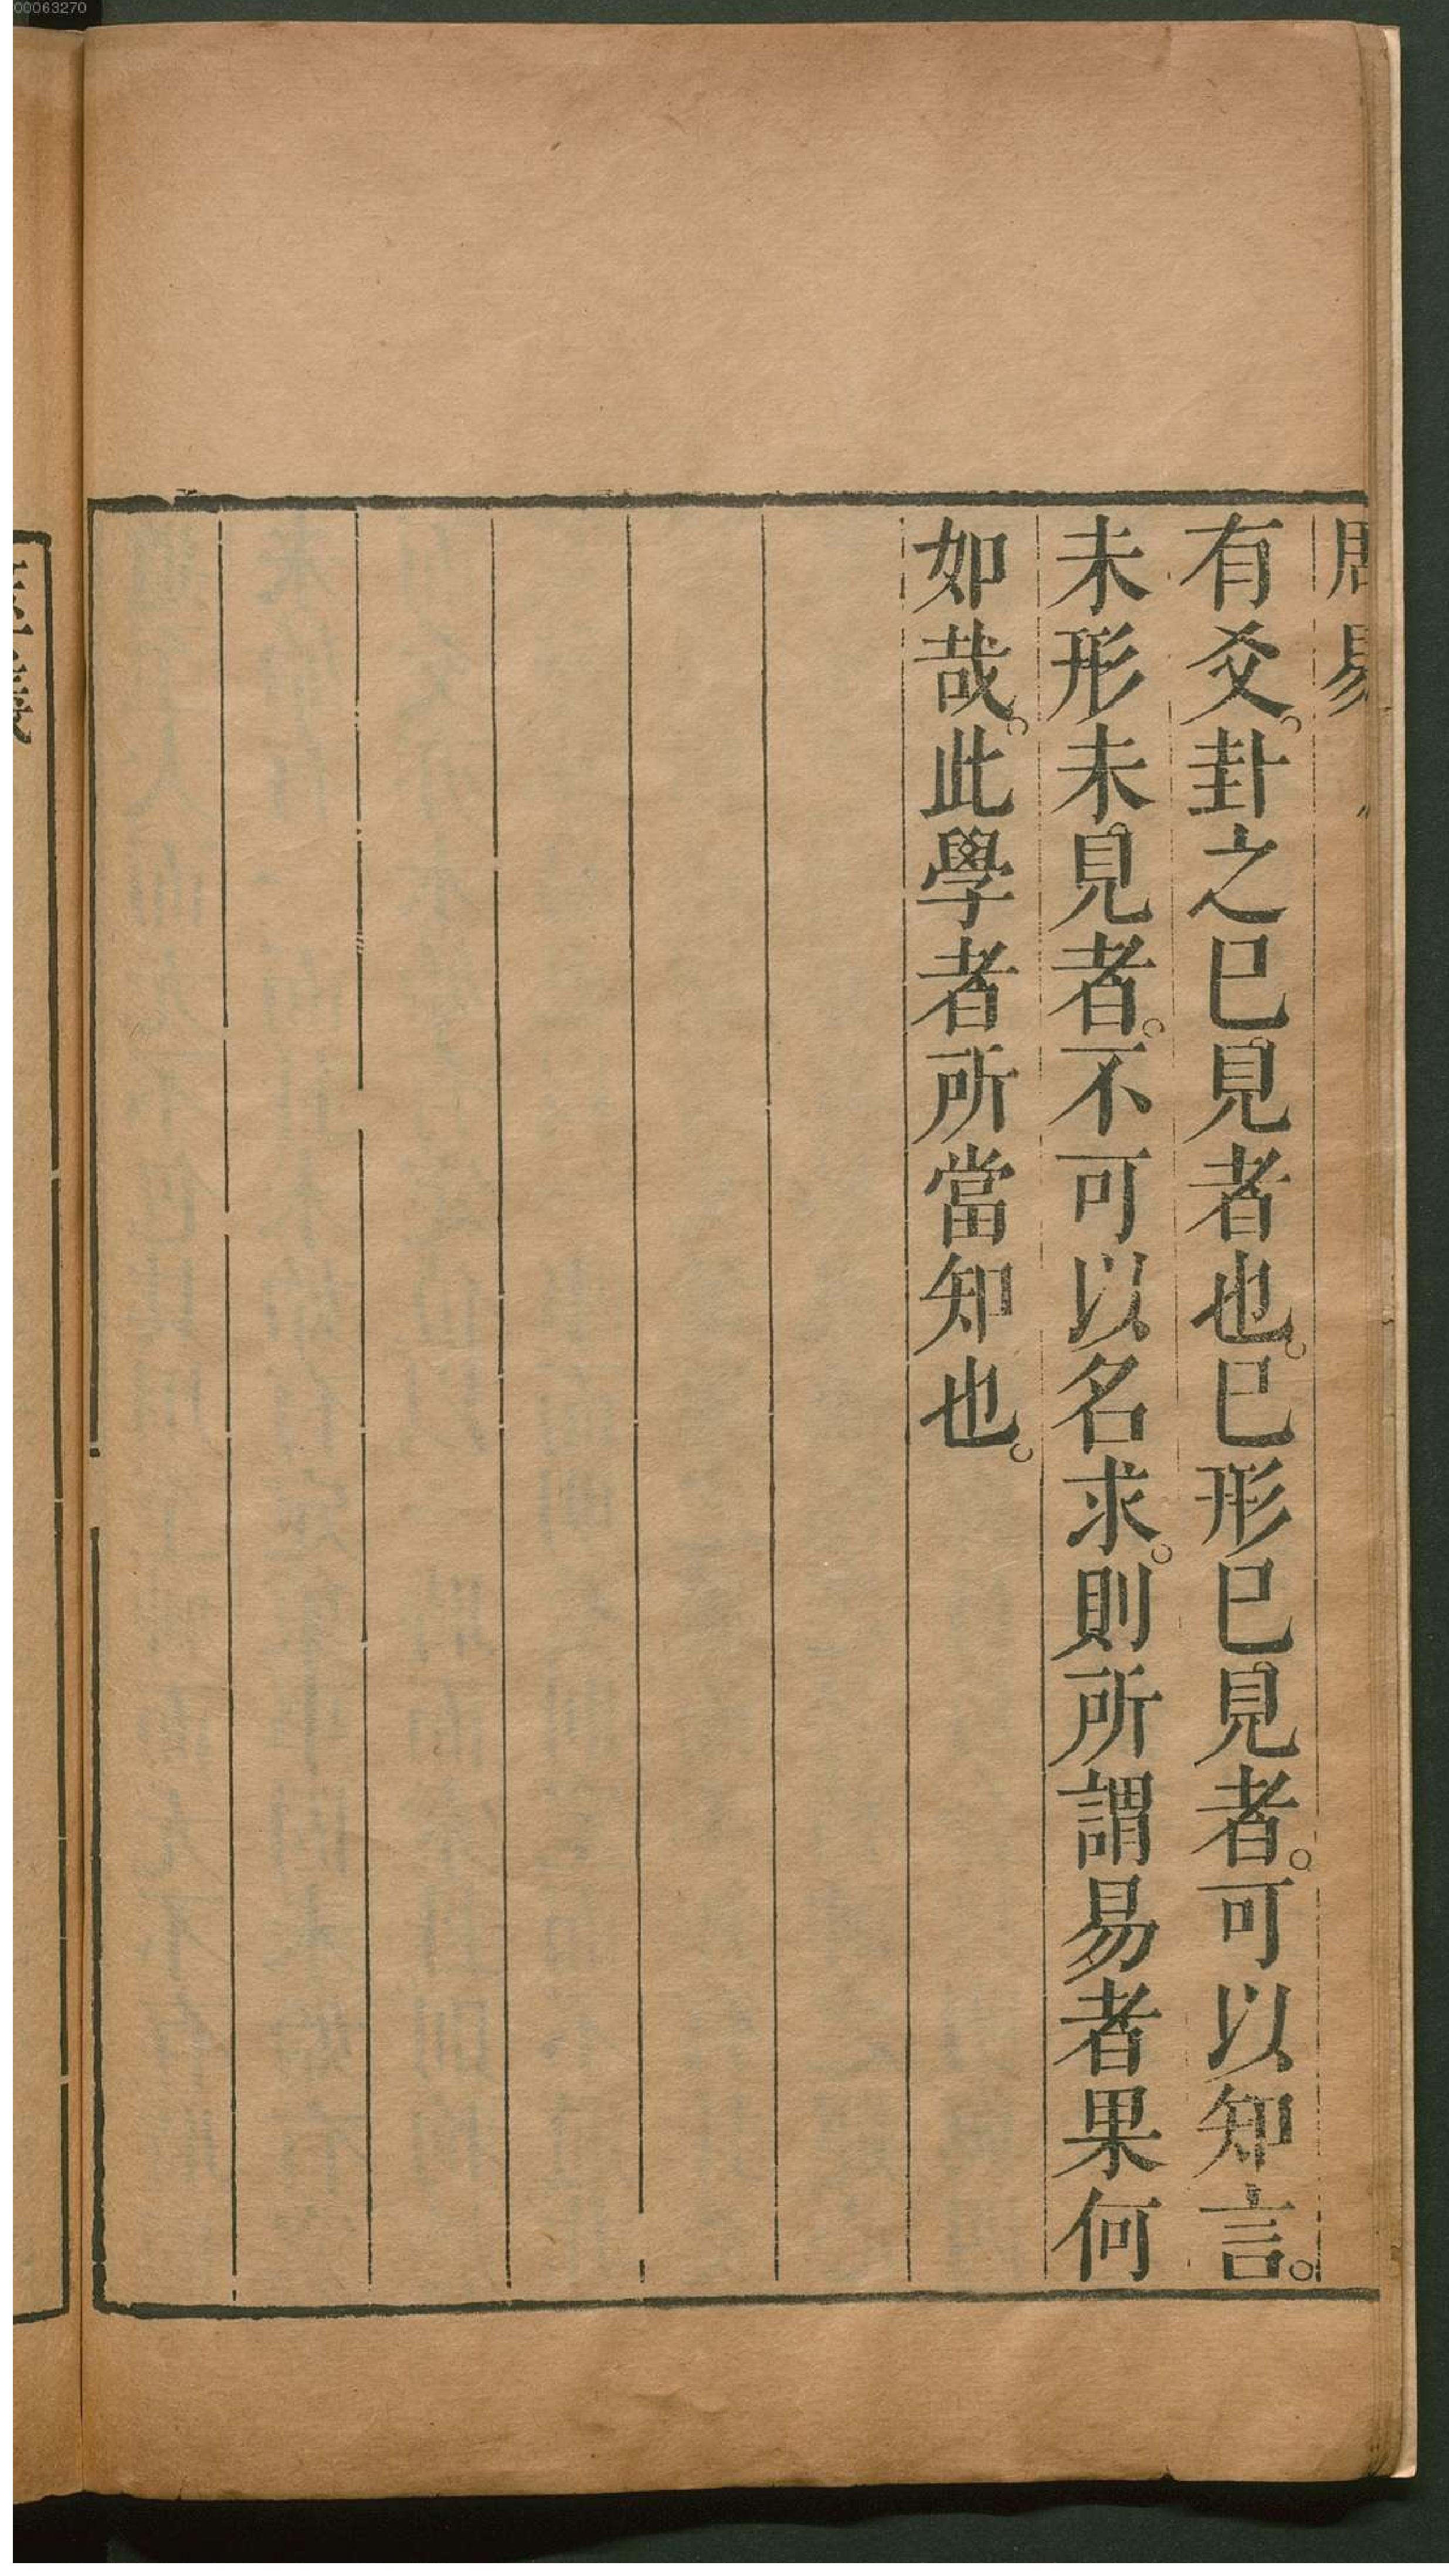 00063270
周易
有爻。卦之巳見者也。巳形巳見者。可以知言。
未形未見者。不可以名求。則所謂易者果何
如哉。此學者所當知也。